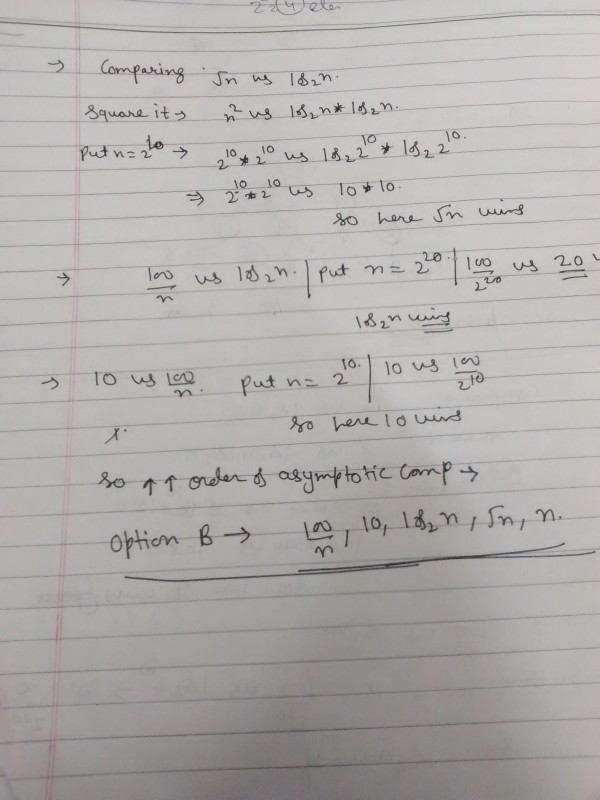 → Comparing √n vs log₂n.
Square it → n² vs log₂n * log₂n.
Put n = 2¹⁰ → 2¹⁰ * 2¹⁰ vs log₂2¹⁰ * log₂2¹⁰.
⇒ 2¹⁰ * 2¹⁰ vs 10 * 10.
so here √n wins
→ 100/n vs log₂n. | put n = 2²⁰ | 100/2²⁰ vs 20
log₂n wins
→ 10 vs 100/n. put n = 2¹⁰. | 10 vs 100/2¹⁰
so here 10 wins
so ↑↑ order of asymptotic comp →
option B → 100/n, 10, log₂n, √n, n.